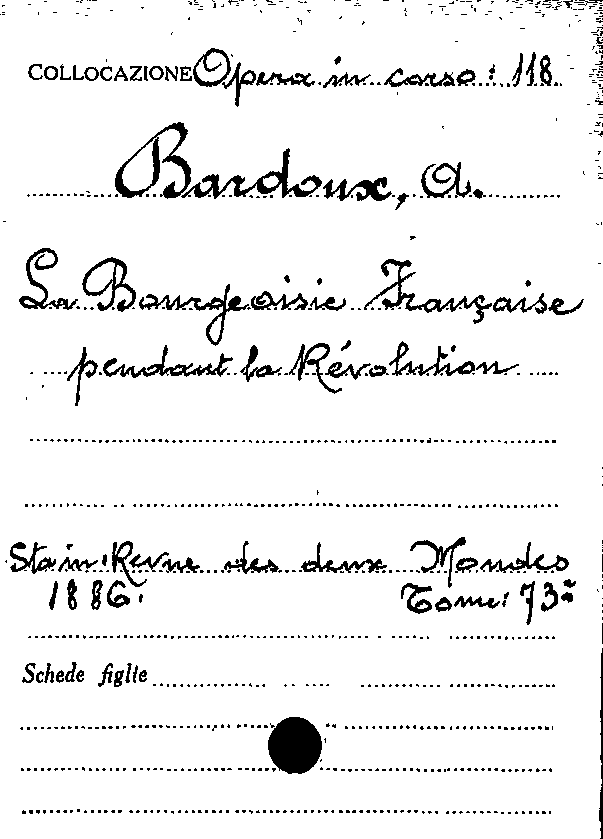 COLLOCAZIONE Opera in corso: 118
Bardoux, A.
La Bourgeoisie Française
pendant la Révolution
Sta in: Revue des deux Mondes
1886. Tome: 73º
Schede figlie